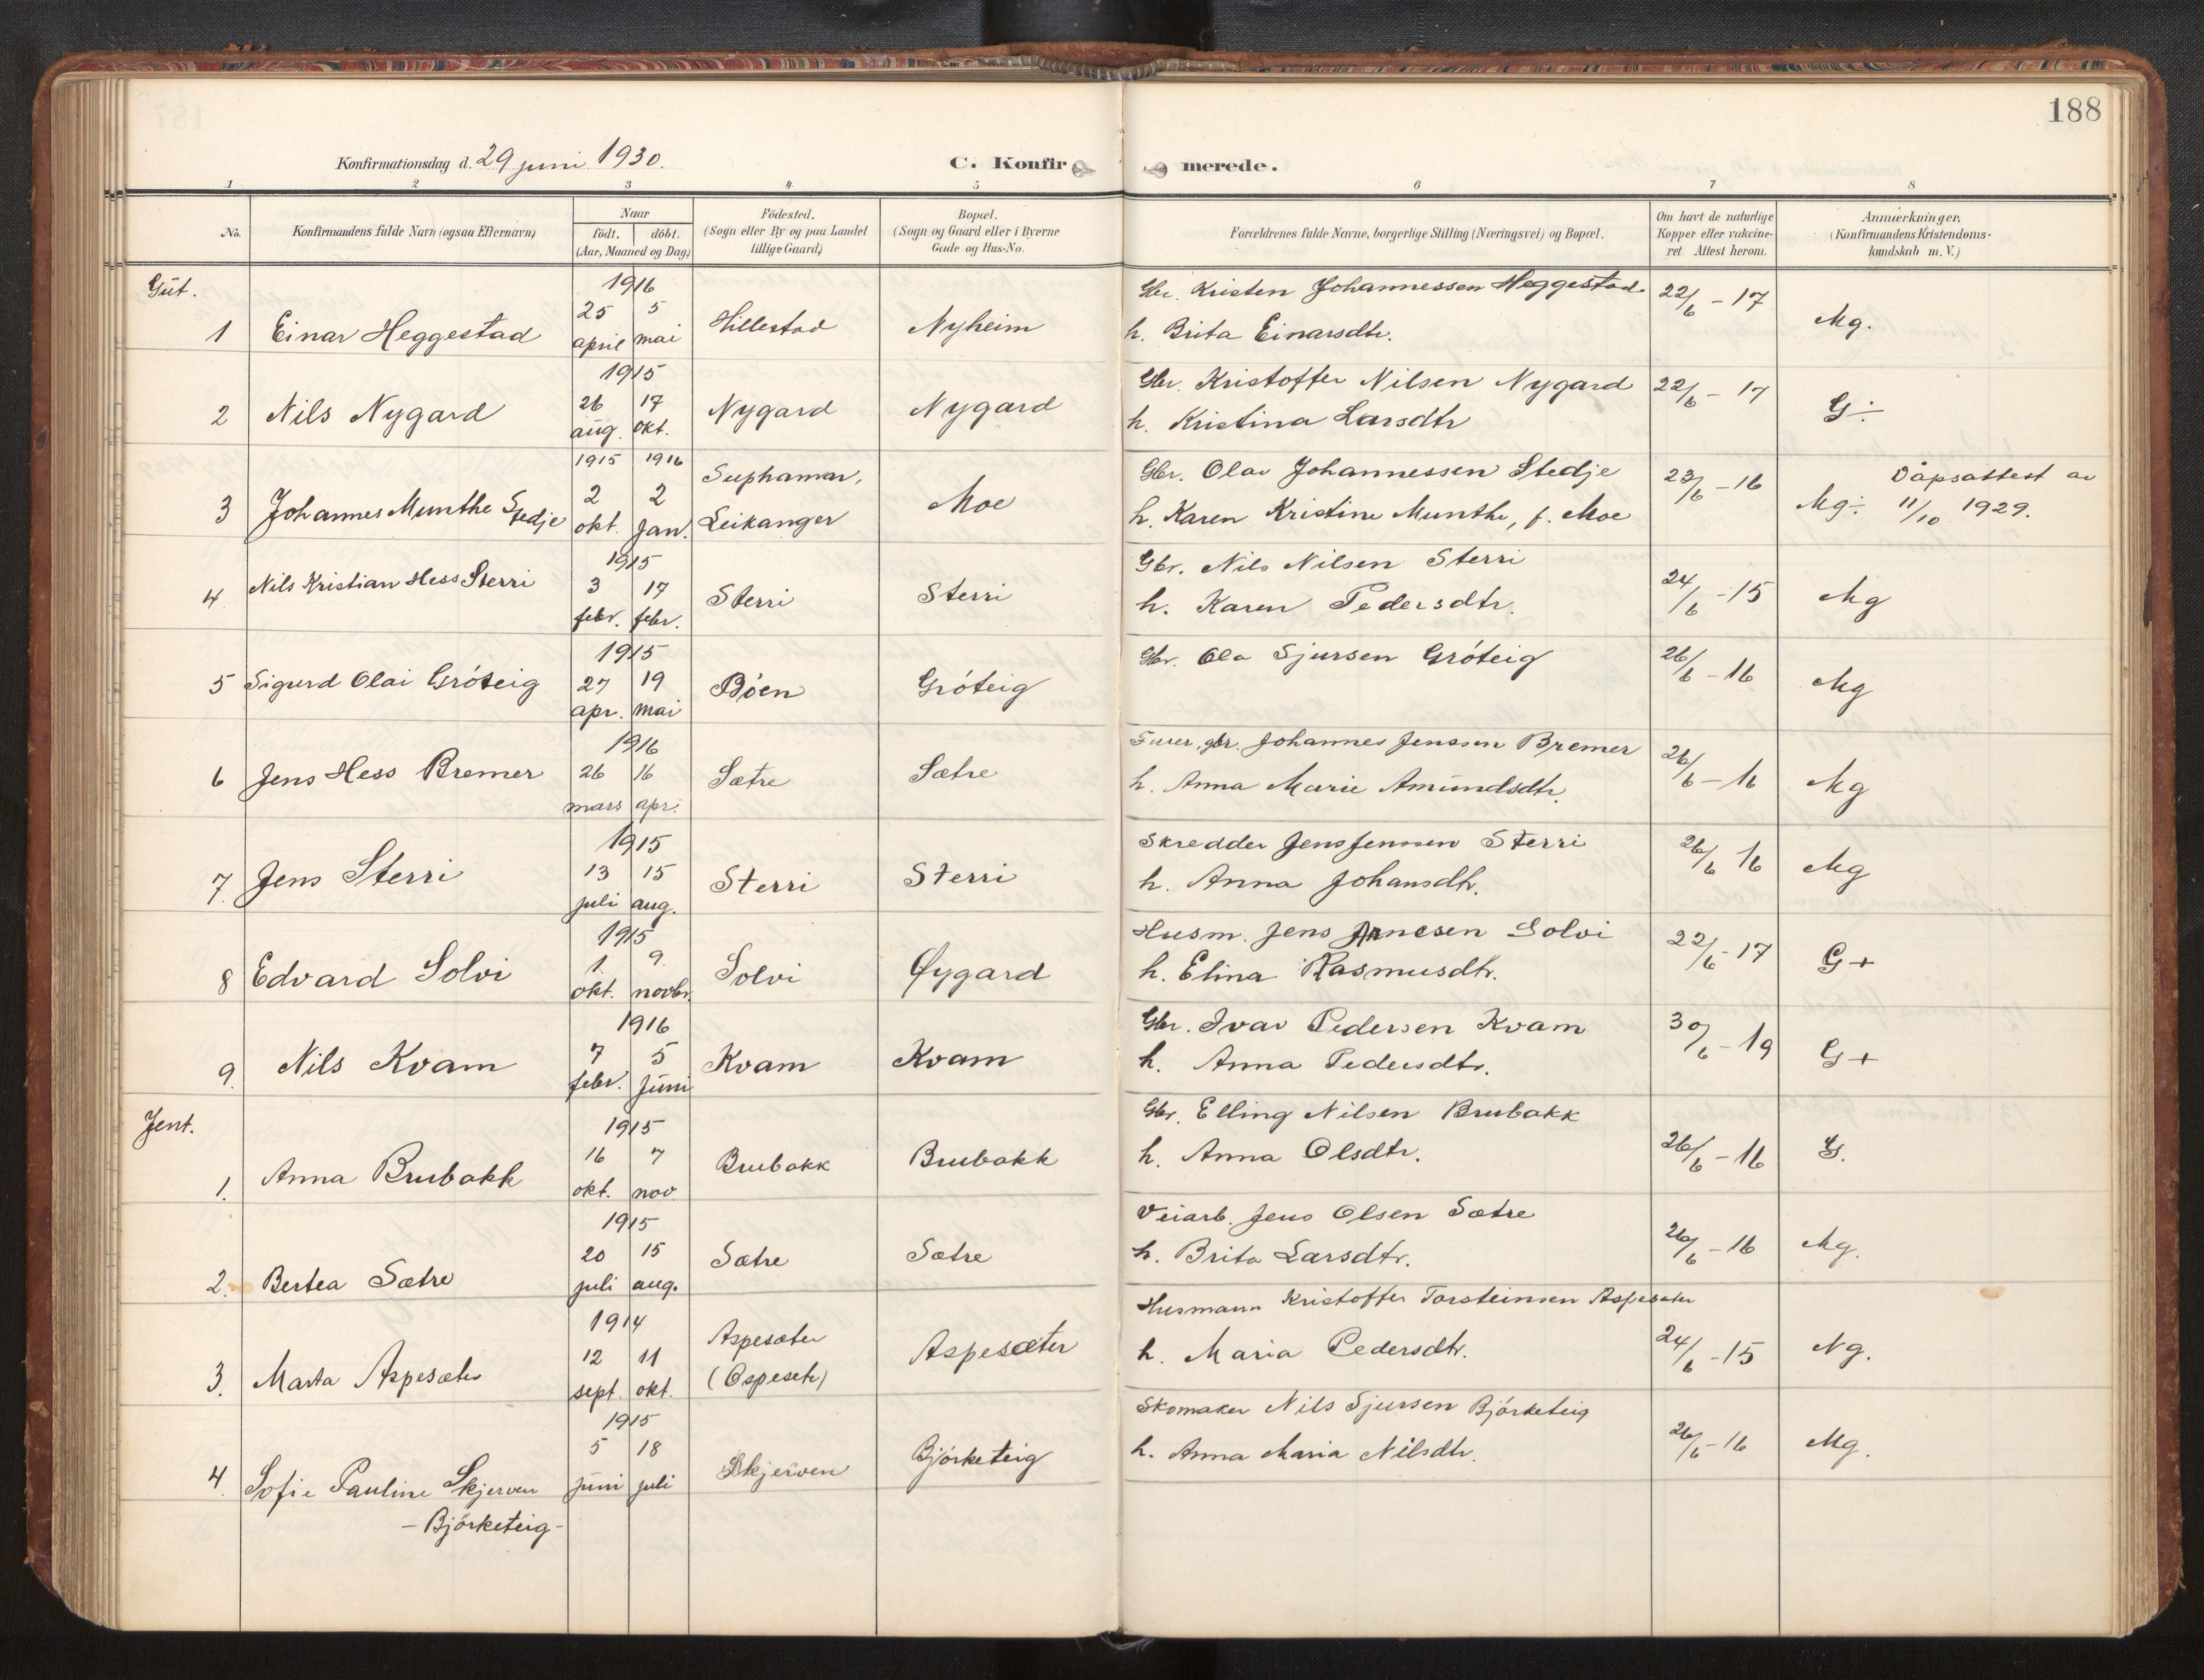 188
Konfirmationsdag d. 29 juni 1930.
C. Konfirmerede.
1 2 3 4 5 6 7 8
No.
Konfirmandens fulde Navn (ogsaa Efternavn)
Naar
födt. döbt.
(Aar, Maaned og Dag)
Födested.
(Sogn eller By og paa Landet
tillige Gaard)
Bopæl.
(Sogn og Gaard eller i Byerne
Gade og Hus-No.
Forældrenes fulde Navne, borgerlige Stilling (Næringsvei) og Bopæl.
Om havt de naturlige
Kopper eller vakcine-
ret Attest herom.
Anmærkninger.
(Konfirmandens Kristendoms-
kundskab m. V.)
Gut.
1 Einar Heggestad
1916
25 5
april mai
Hillestad
Nyheim
Gbr. Kristen Johannessen Heggestad
h. Brita Einarsdtr.
22/6 - 17
Mg.
2 Nils Nygard
1915
26 17
aug. okt.
Nygard
Nygard
Gbr. Kristoffer Nilsen Nygard
h. Kristina Larsdtr
22/6 - 17
G÷
3 Johannes Munthe Stedje
1915 1916
2 2
okt. Jan.
Suphamar,
Leikanger
Moe
Gbr. Olav Johannessen Stedje
h. Karen Kristine Munthe, f. Moe
23/6 - 16
Mg÷
Dåpsattest av
11/10 1929.
4 Nils Kristian Hess Sterri
1915
3 17
febr. febr.
Sterri
Sterri
Gbr. Nils Nilsen Sterri
h. Karen Pedersdtr.
24/6 - 15
Mg
5 Sigurd Olai Gróteig
1915
27 19
apr. mai
Bóen
Gróteig
Gbr. Ola Sjursen Gróteig
26/6 - 16
Mg
6 Jens Hess Bremer
1916
26 16
mars apr.
Sætre
Sætre
gbr. Johannes Jenssen Bremer
h. Anna Marie Amundsdtr.
26/6 - 16
Mg
7. Jens Sterri
1915
13 15
juli aug.
Sterri
Sterri
Skredder Jens Jenssen Sterri
h. Anna Johansdtr.
26/6 16
Mg
8 Edvard Solvi
1915
1. 9.
okt. novbr.
Solvi
Øygard
Husm. Jens Arnesen Solvi
h. Elina Rasmusdtr.
22/6 - 17
G+
9. Nils Kvam
1916
7 5
febr. Juni
Kvam
Kvam
Gbr. Ivar Pedersen Kvam
h. Anna Pedersdtr.
30/6 - 19
G+
Jent.
1. Anna Brubakk
1915
16 7
okt. nov.
Brubakk
Brubakk
Gbr. Elling Nilsen Brubakk
h. Anna Olsdtr.
26/6 - 16
G.
2. Bertea Sætre
1915
20 15
juli aug.
Sætre
Sætre
Veiarb. Jens Olsen Sætre
h. Brita Larsdtr.
26/6 - 16
Mg.
3. Marta Aspesæter
1914
12 11
sept. okt.
Aspesæter
(Ospesetr)
Aspesæter
Husmann Kristoffer Torsteinsen Aspesæter
h. Maria Pedersdtr.
24/6 - 15
Ng.
4. Sofie Pauline Skjerven
- Bjórketeig -
1915
5 18
juni juli
Skjerven
Bjórketeig
Skomaker Nils Sjursen Bjórketeig
h. Anna Maria Nilsdtr.
26/6 - 16
Mg.